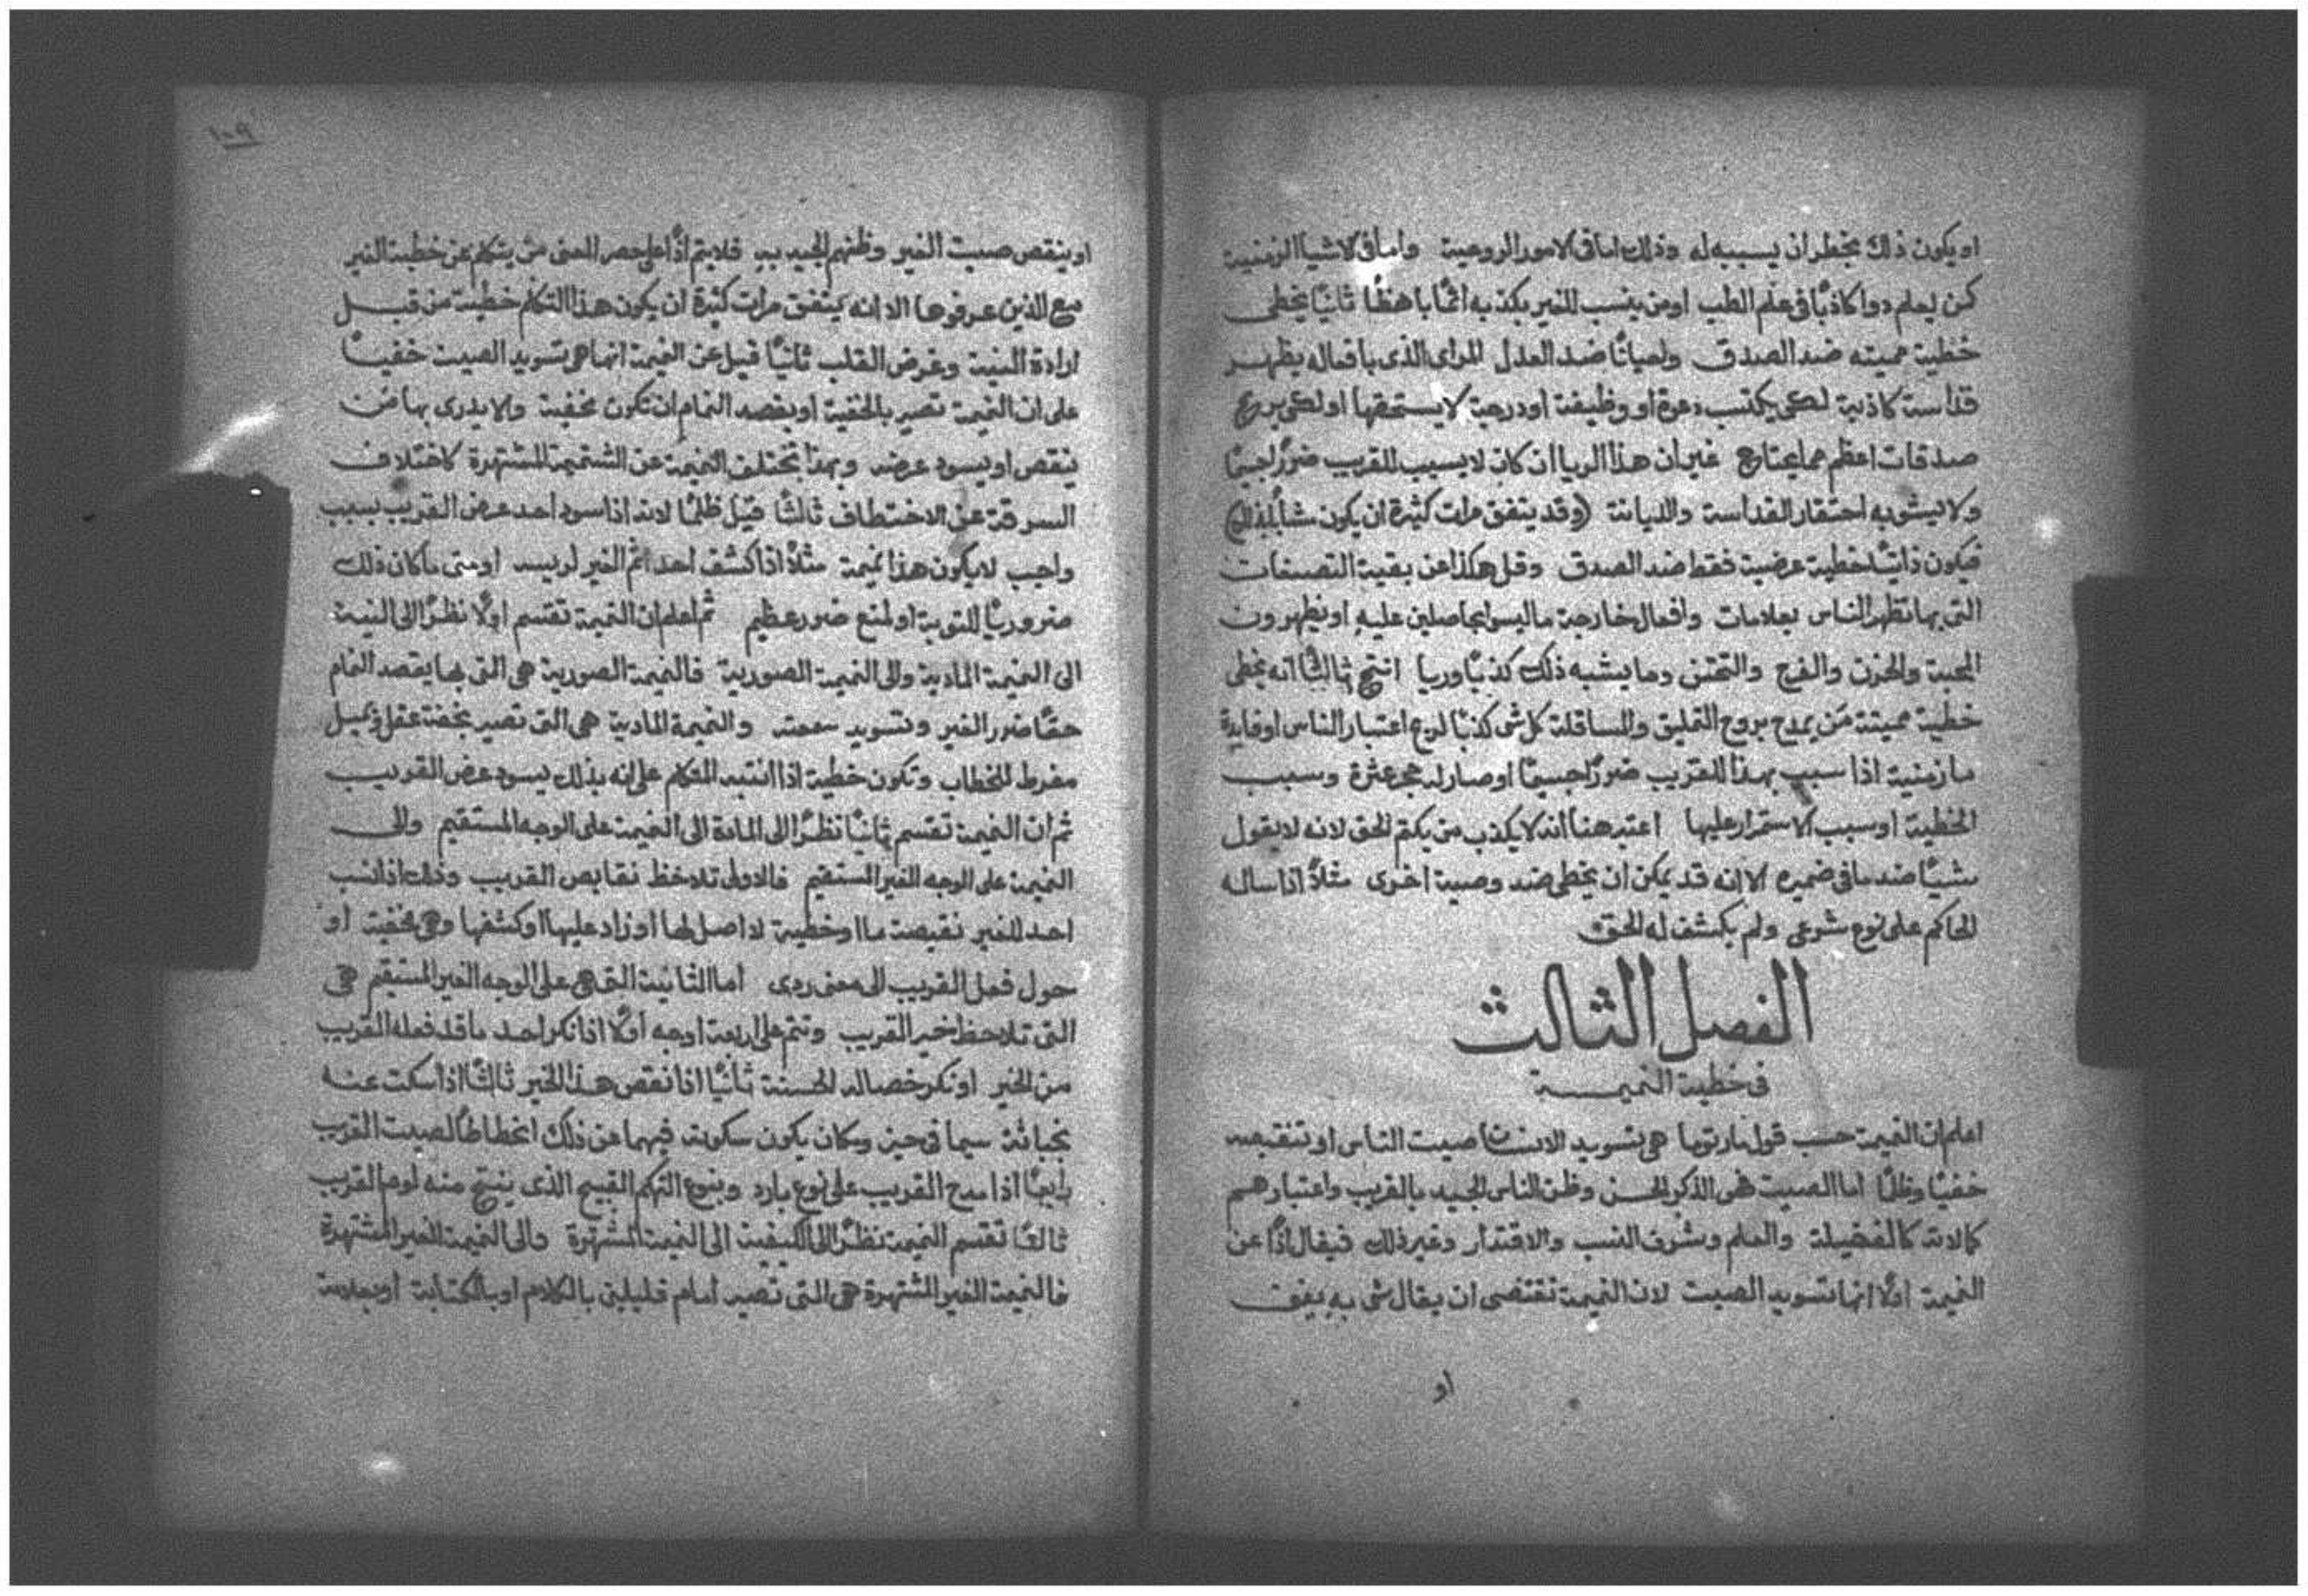 او يكون ذلك بخطر ان يسببه له وذلك اما فى الامور الروحية واما فى الاشيا الزمنية
كمن يعلم دوا كاذبًا فى علم الطب او من ينسب للغير بكذبه اثمًا باهظًا ثانيًا يخطى
خطية مميته ضد الصدق واحيانًا ضد العدل المراى الذى بافعاله يظهر
قداسة كاذبة لكى يكتسب دعوة او وظيفة او درجة لا يستحقها او لكى يربح
صدقات اعظم مما يحتاج غير ان هذا الريا ان كان لا يسبب للقريب ضررًا جسيمًا
ولا يشوبه احتقار القداسة والديانة (وقد يتفق مرات كثيرة ان يكون
فيكون ذاتيًا خطية عرضية فقط ضد الصدق وقل هكذا عن بقية التصنعات
التى بها تظهر الناس بعلامات وافعال خارجة ما ليسوا بحاصلين عليه او يظهرون
المحبة والحزن والفرح والتحنن وما يشبه ذلك كذبًا وريا انتج ثالثًا انه يخطى
خطية مميتة مَن يمدح بروح التمليق والمساقلة كل شى كذبًا لربح اعتبار الناس او فايدة
ما زمنية اذا سبب بهذا للقريب ضررًا جسيمًا او صار له حجر عثرة وسبب
الخطية او سبب الاستمرار عليها اعتبر هنا انه لا يكذب من يكتم الحق لانه لا يقول
شيًا ضد ما فى ضميره الا انه قد يمكن ان يخطى ضد وصية اخرى مثلاً اذا ساله
الحاكم على نوع شرعى ولم يكشف له الحق
الفصل الثالث
فى خطية النميمة
اعلم ان النميمة حسب قول مارتوما هى تسويد الانسان صيت الناس او تنقيصه
خفيًا وظلمًا اما الصيت فهى الذكر الحسن وظن الناس الجيد بالقريب واعتبارهم
كمالاته كالفضيلة والعلم وشرف النسب والاقتدار وغير ذلك فيقال اذًا عن
النميمة اولاً انها تسويد الصيت لان النميمة تقتضى ان يقال شى به
او
١٠٩
او ينقص صيت الغير وظنهم الجيد به فلا يتم اذًا على حصر المعنى من يتكلم عن خطية الغير
مع الذين عرفوها الا انه يتفق مرات كثيرة ان يكون هذا التكلم خطية من قبل
ارادة النية وغرض القلب ثانيًا قيل عن النميمة انها هى تسويد الصيت خفيًا
على ان النميمة تصير بالخفية او يقصد النمام ان تكون مخفية ولا يدرى بها مَن
ينقص او يسود عرضه وبهذا تختلف النميمة عن الشتيمة المشتهرة كاختلاف
السرقة عن الاختطاف ثالثًا قيل ظلمًا لانه اذا سود احد عرض القريب بسبب
واجب لا يكون هذا نميمة مثلاً اذا كشف احد اثم الغير لريسه او متى ما كان ذلك
ضروريًا للتوبة او لمنع ضرر عظيم ثم اعلم ان النميمة تقسم اولاً نظرًا الى النية
الى النميمة المادية والى النميمة الصورية فالنميمة الصورية هى التى بها يقصد النمام
حقًا ضرر الغير وتسويد سمعته والنميمة المادية هى التى تصير بخفة عقل وبميل
مفرط للخطاب وتكون خطية اذا انتبه المتكلم على انه بذلك يسود عرض القريب
ثم ان النميمة تقسم ثانيًا نظرًا الى المادة الى النميمة على الوجه المستقيم والى
النميمة على الوجه الغير المستقيم فالاولى تلاحظ نقايص القريب وذلك اذا نسب
احد للغير نقيصة ما او خطية لا اصل لها او زاد عليها او كشفها وهى مخفية او
حول فعل القريب الى معنى ردى اما الثانية التى هى على الوجه الغير المستقيم هى
التى تلاحظ خير القريب وتتم على اربعة اوجه اولاً اذا نكر احد ما قد فعله القريب
من الخير او نكر خصاله الحسنة ثانيًا اذا نقص هذا الخير ثالثًا اذا سكت عنه
بخباثة سيما فى حين ومكان يكون سكوته فيهما عن ذلك انحطاطًا لصيت القريب
رابعًا اذا مدح القريب على نوع بارد وبنوع التهكم القبيح الذى ينتج منه لوم القريب
ثالثًا تقسم النميمة نظرًا الى الكيفية الى النميمة المشتهرة والى النميمة الغير المشتهرة
فالنميمة الغير المشتهرة هى التى تصير امام قليلين بالكلام او بالكتابة او بعلامة